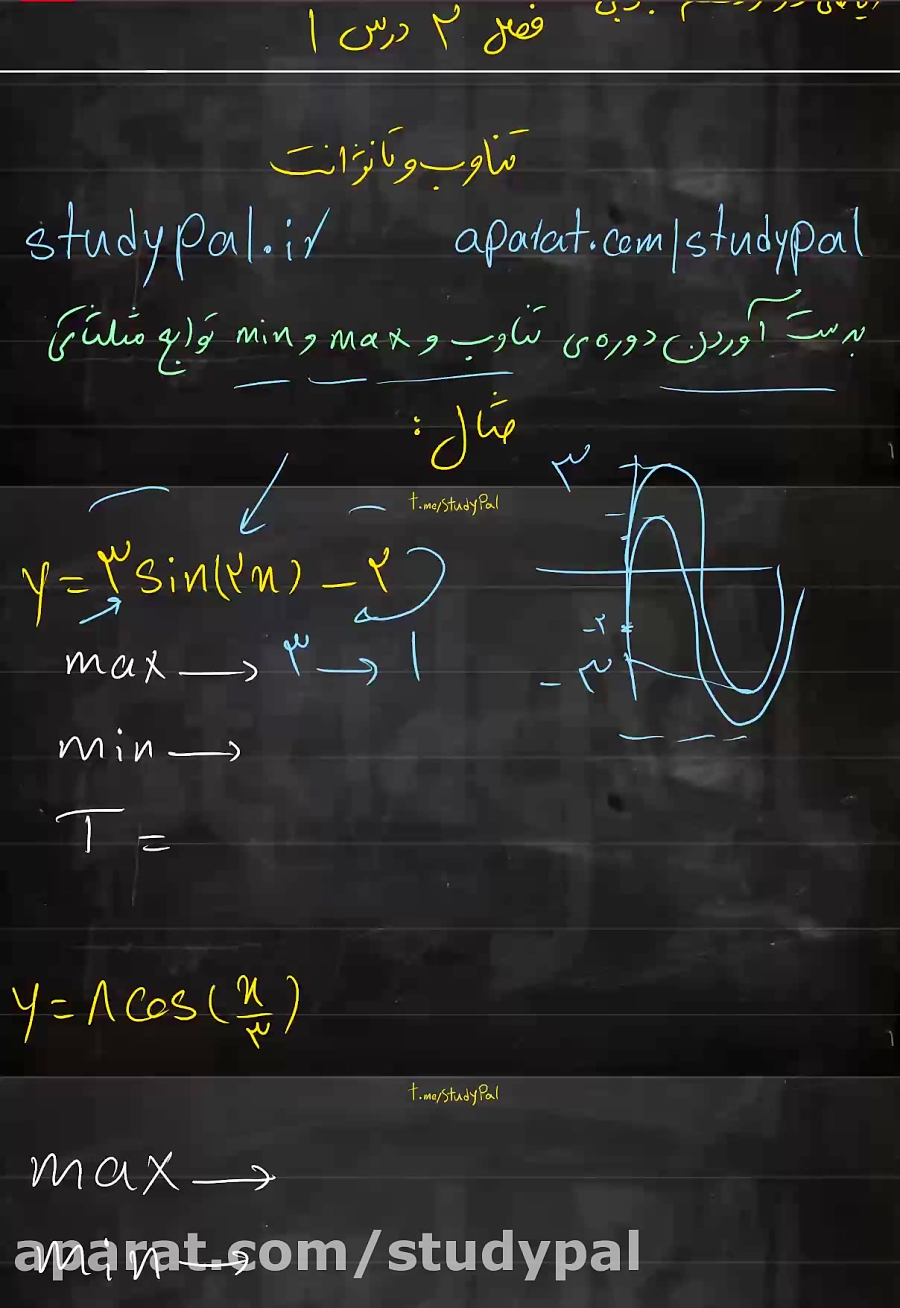 فصل ۲ درس ۱
تناوب و تانژانت
studypal.ir aparat.com/studypal
بدست آوردن دوره‌ی تناوب و max و min توابع مثلثاتی
مثال :
۳
t.me/studyPal
y = ۳ sin(۲x) - ۲
-۲
max → ۳ → ۱
-۳
min →
T =
y = ۸ cos(x/۳)
t.me/studyPal
max →
min →
aparat.com/studypal